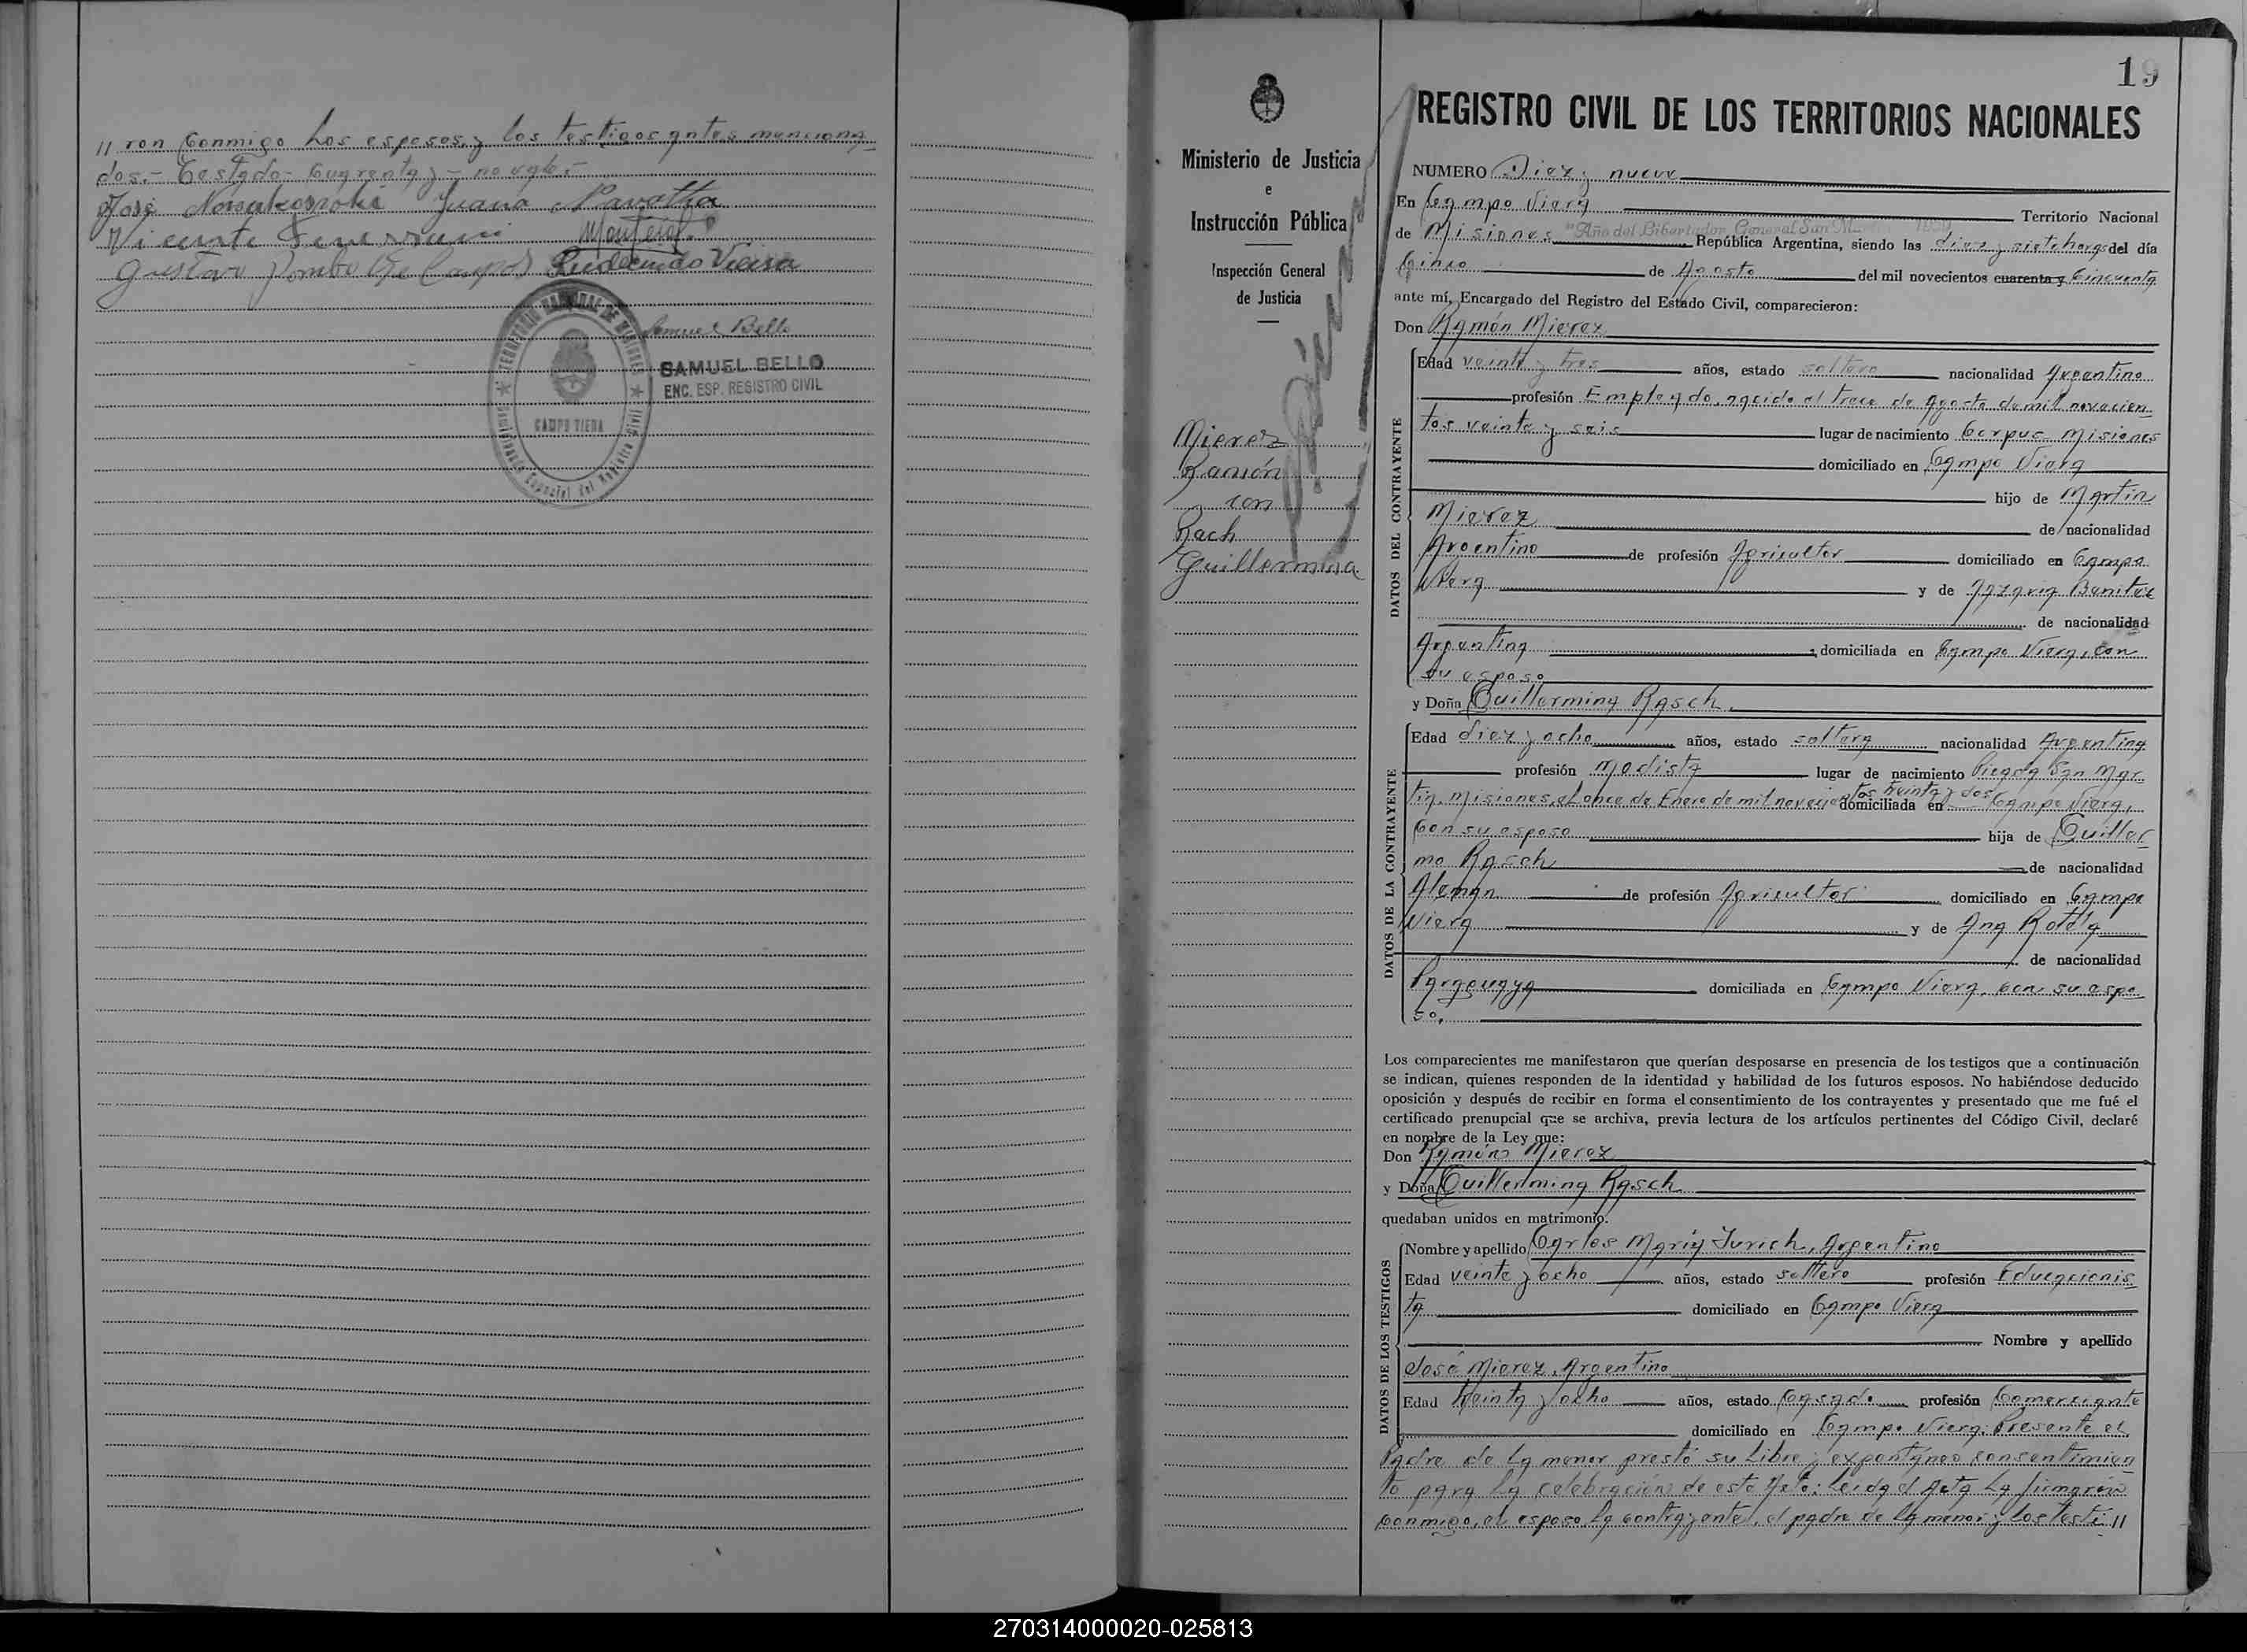 // ron conmigo Los esposos y los testigos antes menciona-
dos.- Testado- cuarenta y - no vale.-
José Juana
Vicente
Gustavo Pombo de Campos Gudecindo Vieira
Samuel Bello
SAMUEL BELLO
ENC. ESP. REGISTRO CIVIL
CAMPO VIERA
19
Ministerio de Justicia
e
Instrucción Pública
Inspección General
de Justicia
Mierez
Ramón
con
Rach
Guillermina
REGISTRO CIVIL DE LOS TERRITORIOS NACIONALES
NUMERO Diez y nueve
En Campo Viera Territorio Nacional
"Año del Libertador General San
de Misiones República Argentina, siendo las diez y siete horas del día
Cinco de Agosto del mil novecientos cuarenta y Cincuenta
ante mí, Encargado del Registro del Estado Civil, comparecieron:
Don Ramón Mierez
DATOS DEL CONTRAYENTE
Edad veinte y tres años, estado soltero nacionalidad Argentino
profesión Empleado, nacido el trece de Agosto de mil novecien-
tos veinte y seis lugar de nacimiento Corpus Misiones
domiciliado en Campo Viera
hijo de Martin
Mierez de nacionalidad
Argentino de profesión Agricultor domiciliado en Campo
Viera y de Benitez
de nacionalidad
Argentina domiciliada en Campo Viera, con
su esposo
y Doña Guillermina Rasch.
DATOS DE LA CONTRAYENTE
Edad diez y ocho años, estado soltera nacionalidad Argentina
profesión Modista lugar de nacimiento Picada San Mar-
tin, Misiones, el once de Enero de mil novecientos treinta y dos domiciliada en Campo Viera,
Con su esposo hija de Guiller-
mo Rasch de nacionalidad
Aleman de profesión Agricultor domiciliado en Campo
Viera y de Ana
de nacionalidad
Paraguaya domiciliada en Campo Viera, con su espo-
so.
Los comparecientes me manifestaron que querían desposarse en presencia de los testigos que a continuación
se indican, quienes responden de la identidad y habilidad de los futuros esposos. No habiéndose deducido
oposición y después de recibir en forma el consentimiento de los contrayentes y presentado que me fué el
certificado prenupcial que se archiva, previa lectura de los artículos pertinentes del Código Civil, declaré
en nombre de la Ley que:
Don Ramón Mierez
y Doña Guillermina Rasch
quedaban unidos en matrimonio.
DATOS DE LOS TESTIGOS
Nombre y apellido Carlos María Jurich, Argentino
Edad veinte y ocho años, estado soltero profesión Educacionis-
ta domiciliado en Campo Viera
Nombre y apellido
José Mierez, Argentino
Edad treinta y ocho años, estado Casado profesión Comerciante
domiciliado en Campo Viera. Presente el
Padre de la menor prestó su libre y expontáneo consentimien-
to para la celebración de este Acto; Leida el Acta la firmaron
conmigo, el esposo la contrayente, el padre de la menor y los testi //
270314000020-025813